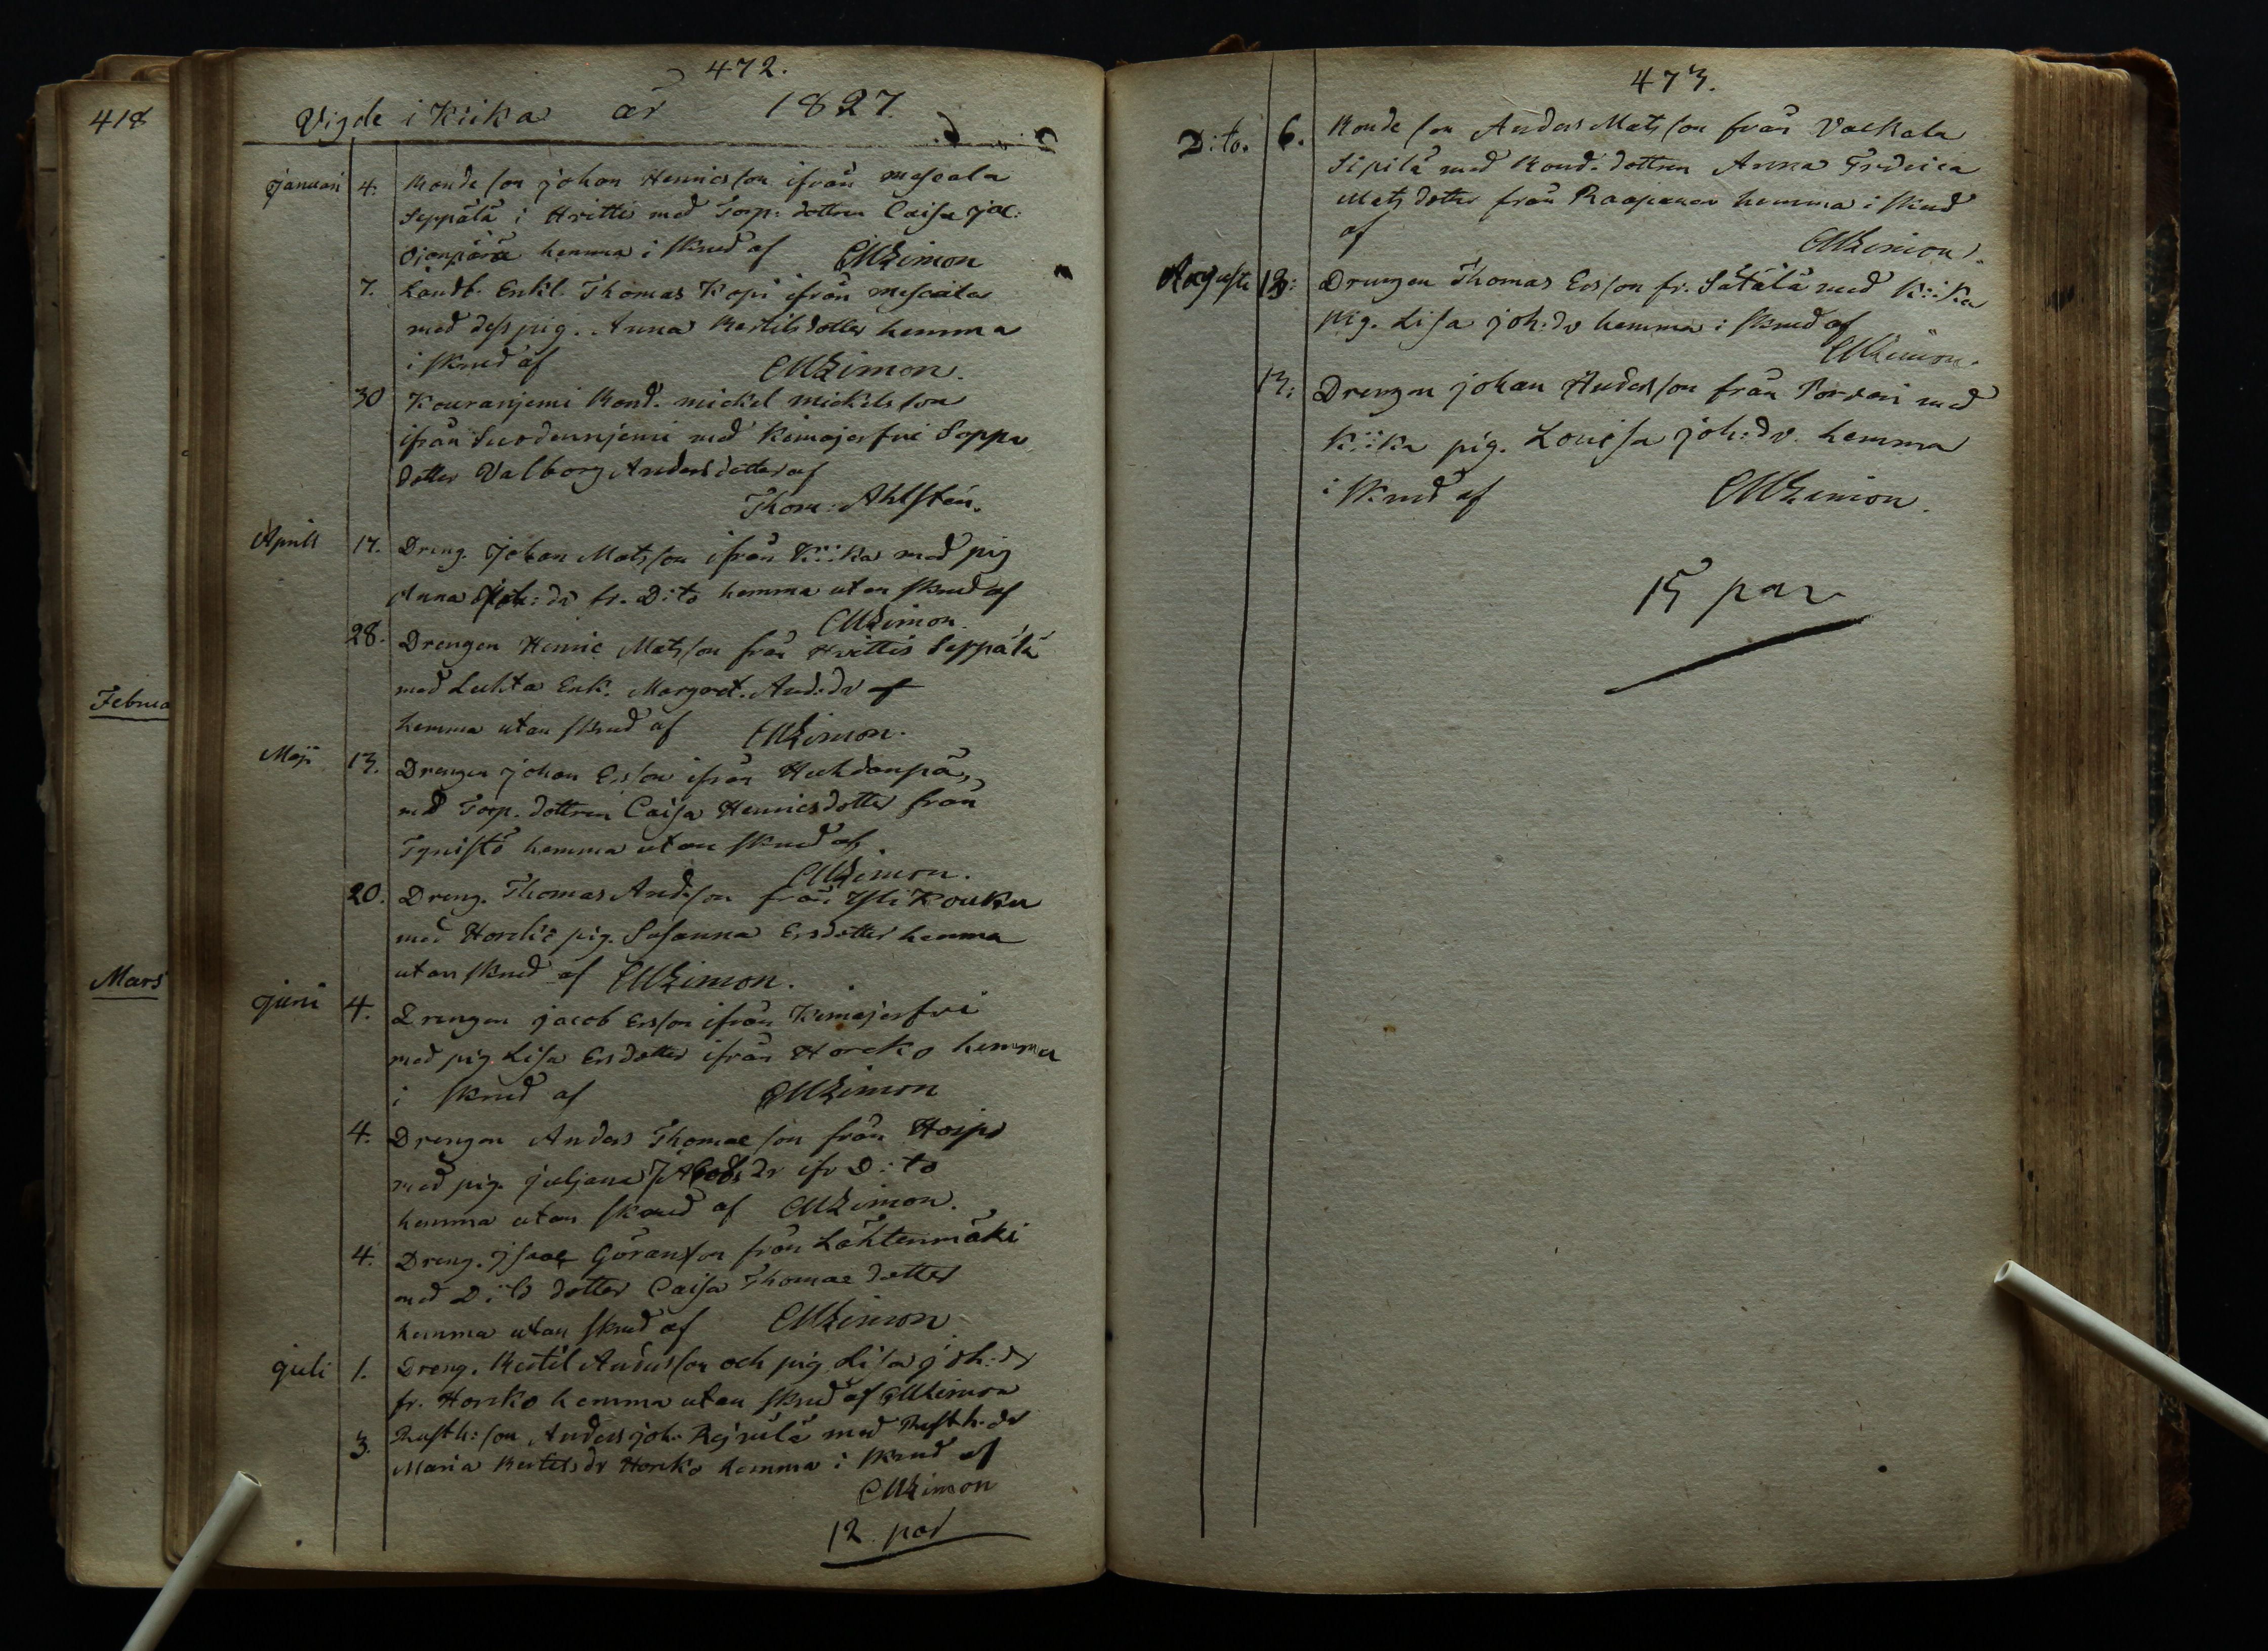 418
Februa
Mars
472.
Vigde i Kiika år 1827.
Januari 4. Bonde son Johan Henricsson ifrån Meskala
Seppälä i Hvittis med Torp: dottren Caisa Jac:
Ojanpärä hemma i skrud af CMZimon
7. Landb. Enkl. Thomas Kopi ifrån Meskala
med dess pig. Anna Bertilsdotter hemma
i skrud af CMZimon.
30 Kouranjemi Bond. Mickel Mickelsson
ifrån Suodennjemi med Keinojerfvi Soppa
dotter Valborg Andersdotter af
Thom: Ahlstén.
Aprill 17. Dreng. Johan Matsson ifrån Kiika med pig
Anna dr fr. D:to hemma utan skrud af
CMZimon.
28. Drengen Henric Matsson från Hvittis Seppälä
med Luhta Enk. Margret. And:dr af
hemma utan skrud af CMZimon.
Maji 13. Drengen Johan Ersson ifrån Huhdanpä,
med Torp. dottren Caisa Henricsdotter från
Tynistö hemma utan skrud af
CMZimon.
20. Dreng. Thomas Andsson från Yli Kouku
med Horcko pig. Susanna Ersdotter hemma
utan skrud af CMZimon.
Juni 4. Drengen Jacob Ersson ifrån Keinojerfvi
med pig. Lisa Ersdotter ifrån Horcko hemma
i skrud af CMZimon
4. Drengen Anders Thomasson från Hoipo
med pig. Juljana Jacobs dr ifr D:to
hemma utan skrud af CMZimon.
4. Dreng. Isaac Göransson från Lähtenmäki
med D:to dotter Caisa Thomae dotter
hemma utan skrud af CMZimon
Juli 1. Dreng. Bertil Andersson och pig. Lisa Joh:dr
fr. Horcko hemma utan skrud af CMZimon
3. Rusth: son Anders Joh. med Rusth. dr
Maria Bertels dr Horcko hemma i skrud af
CMZimon
12 par
473.
Dito. 6. Bonde son Anders Matsson från Vackala
Sipilä med Bond. dottren Anna Fredrica
Mats dotter från Raapanen hemma i skrud
af CMZimon.
Augusti 13: Drengen Thomas Ersson fr. Sätälä med Kiika
pig. Lisa Joh:dr hemma i skrud af
CMZimon.
13: Drengen Johan Andersson från Pordari med
Kiika pig. Lovisa Joh:dr. hemma
i skrud af CMZimon.
15 par